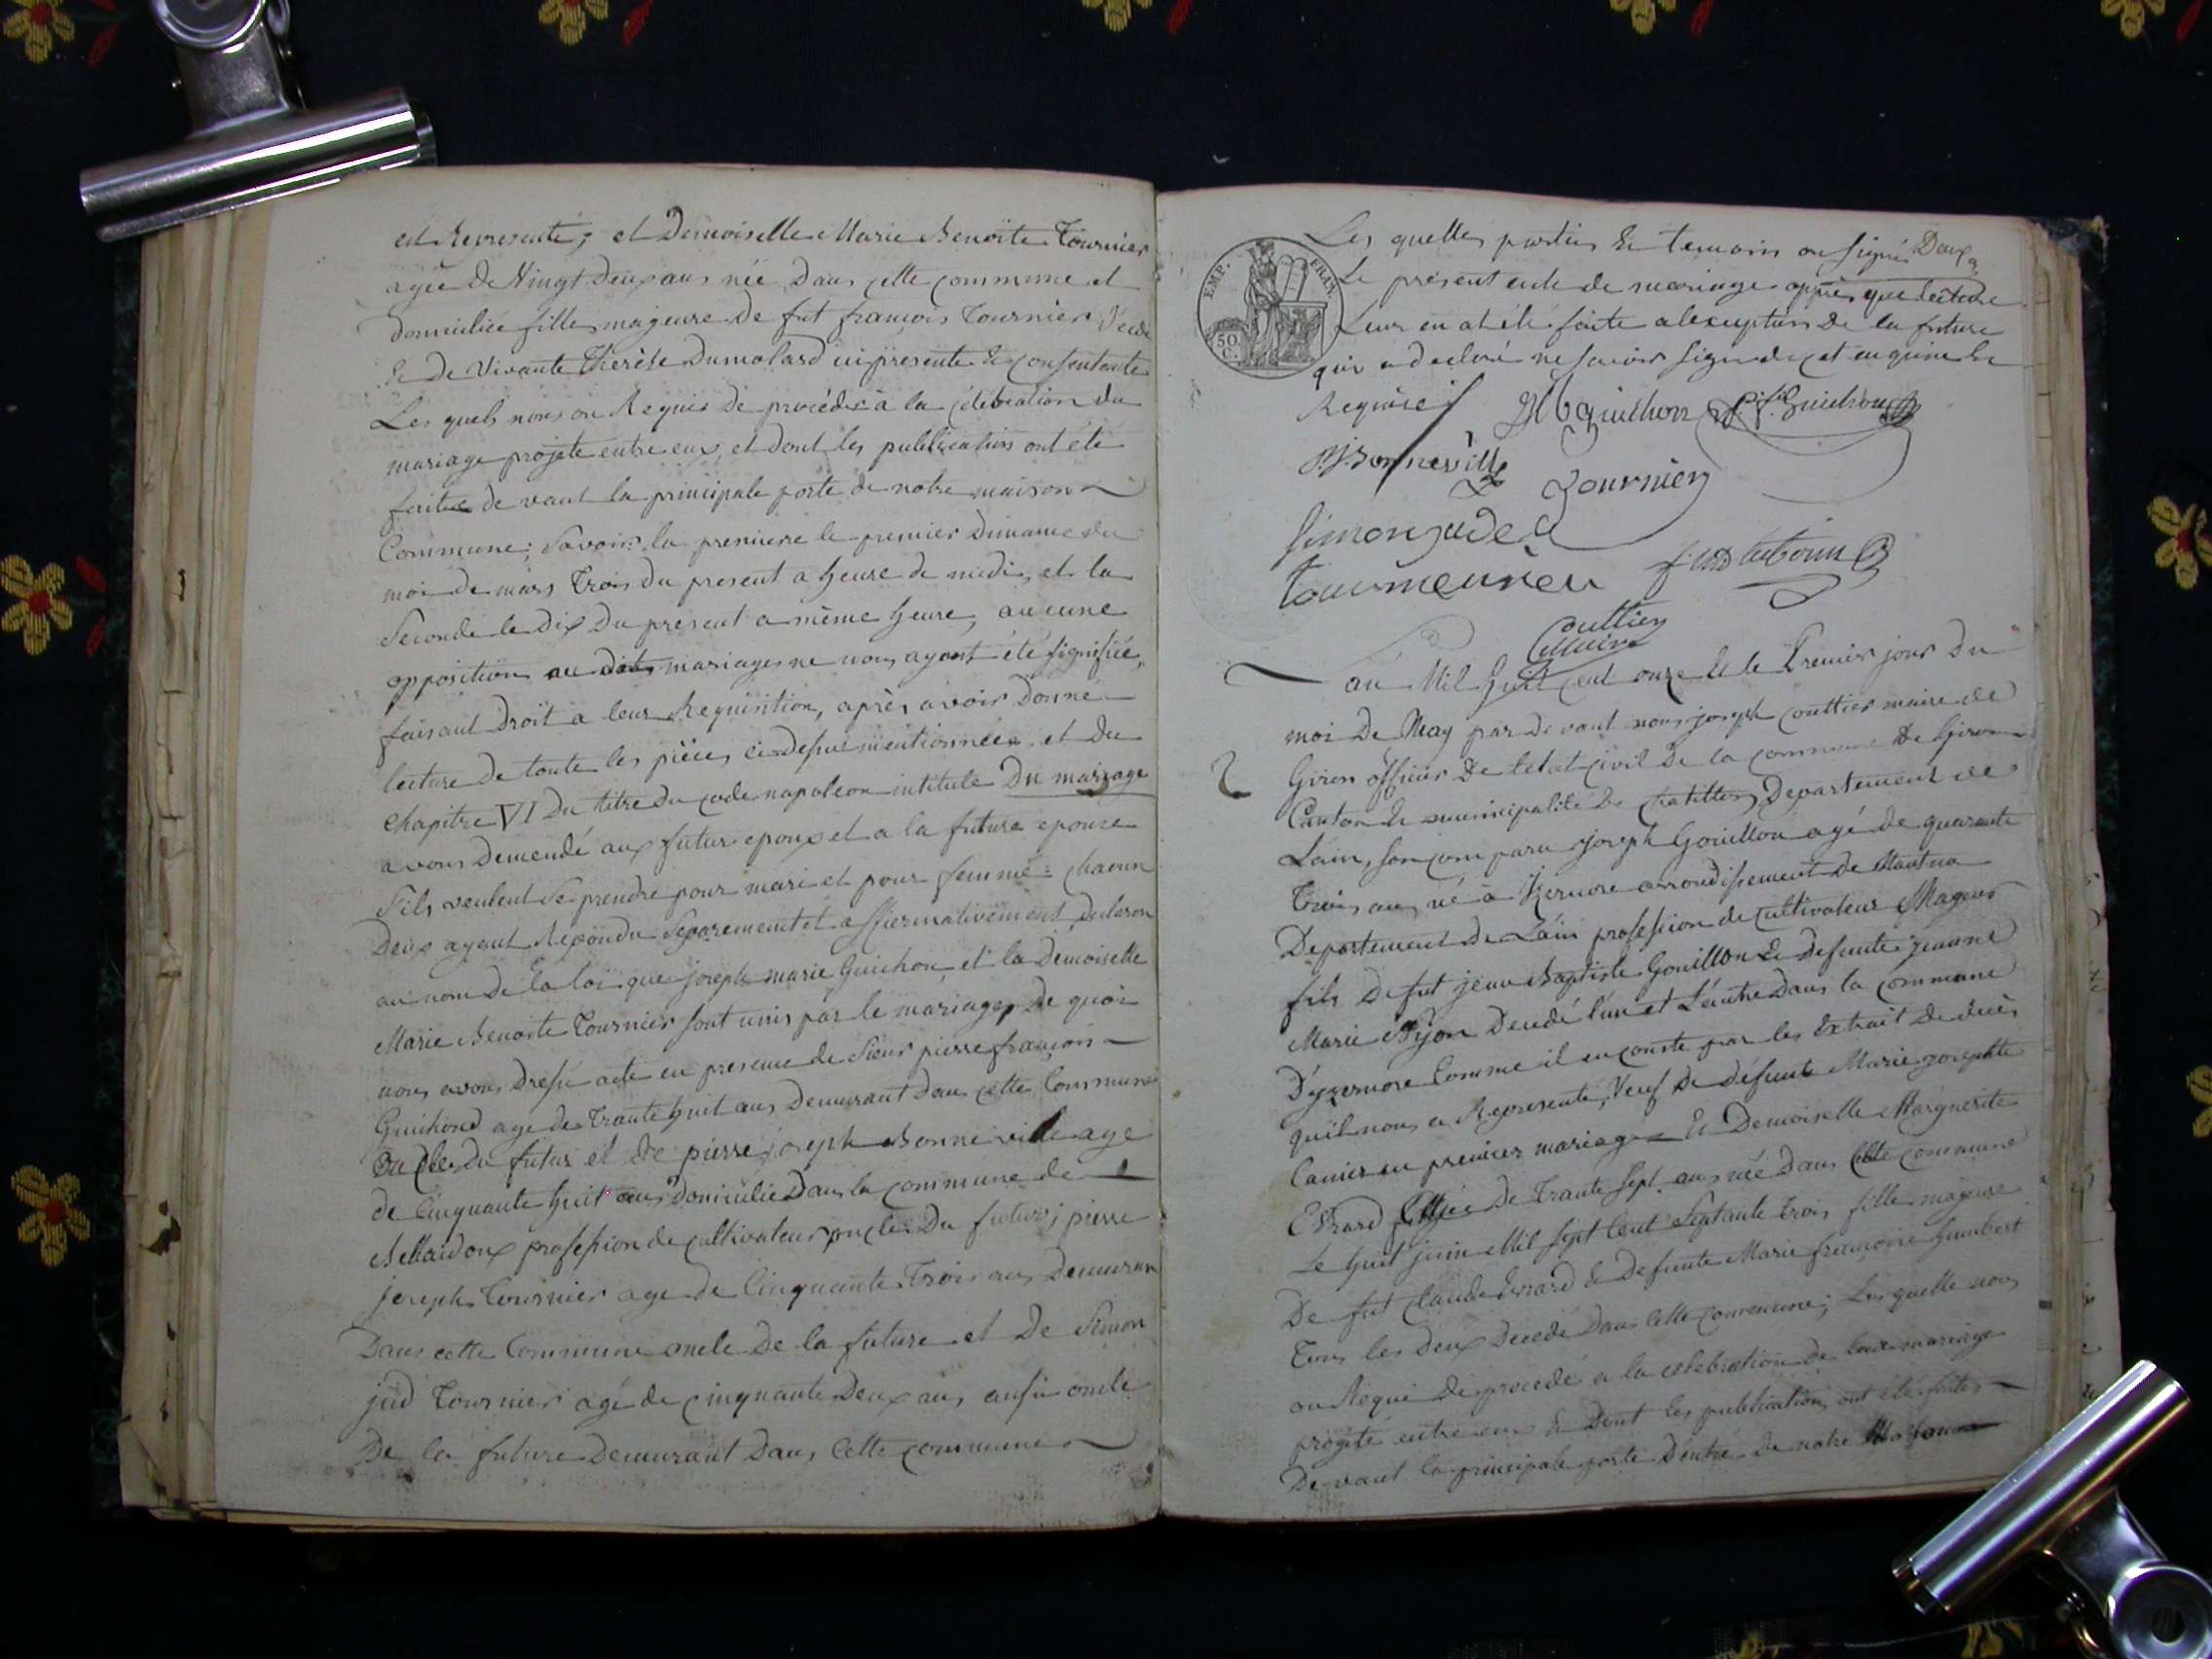 est Representé; et Demoiselle Marie Benoite Tournier
agée de Vingt deux ans née dans cette commune et
domiciliée fille mageure de fut françois Tournier
& de Vivante Thérèse Dumolard ici presente & consentente
Les quels nous on Requis de procéder à la celebration du
mariage projeté entre eux, et dont les publications ont été
faites de vant la principale porte de notre maison
Commune; Savoir: la premiere le premier dimance du
moi de mars trois du present a heure de midi, et la
Seconde le dix du present a même heure, aucune
opposition au dit mariages ne nous ayant été signifiée,
faisant droit a leur Requisition, après avoir donné
lecture de toute les pièces ci-desus mentionnées et du
chapitre VI du titre du code napoleon intitulé Du mariage
avons demendé aux futur epoux et a la future epouse
s'ils veulent se prendre pour mari et pour femme = chacun
Deux ayant Repondu Separement et affiermativement, declaron
au nom de la loi que joseph marie Guichon et la Demoiselle
Marie Benoite Tournier sont unis par le mariage, de quoi
nous avons dressé acte en presence de Sieur pierre françois
Guichond age de Trante huit ans demeurant dans cette Commune
oncle du futur et de pierre joseph Bonneville age
de Cinquante huit ans Domicilié Dans la commune de
Bellaidoux profession de cultivateur oncle Du futur; pierre
joseph Tournier age de Cinquante Trois ans Demeuran
Dans cette Commune oncle de la future et De Simon
jud Tournier agé de cinquante deux ans ausi oncle
De la future Demeurant dans Cette commune
Les quelles parties & temoin on signé Deux
Le présent acte de mariage après que lecture
Leur en at été faite a lexception de la future
qui a declaré ne savoir signer de cet enquire &
Requise
Guichon P. f. Guichon
P. J. Bonneville
Tournier
Simon jude
tournier
Couttier
Maire
an Mil huit cent onze & le Premier jour Du
moi De May par de vant nous joseph Couttier maire de
Giron officier De letat civil De la commune de Giron
Canton & municipalité de Chatillon, Departement de
Lain, son comparu joseph Gouillon agé de quarante
Trois ans né à Izernore arrondissement de Nantua
Departement de Lain profession de cultivateur Mageur
fils De fut jean Baptiste Gouillon & defunte jeanne
Marie Dédé l'un et L'autre Dans la commune
D'yzernore Comme il en conste par les Extrait de decès
qu'il nous a Representé, Veuf de défunte Marie josephte
en premier mariage & Demoiselle Margnerite
Evrard agée De Trante Sept ans née Dans Cette commune
Le huit juin Mil Sept Cent Septante trois fille mageure
De fut Claude Evrard & Defunte Marie françoise humbert
Tous les deux Decedé Dans Cette commune; Les quelle nous
on Requi de procedé a la celebration de leur mariage
progeté entre eux & Dont les publications ont été faites
De vant la principale porte Dentré de notre Maison
EMP. FRAN.
50
C.